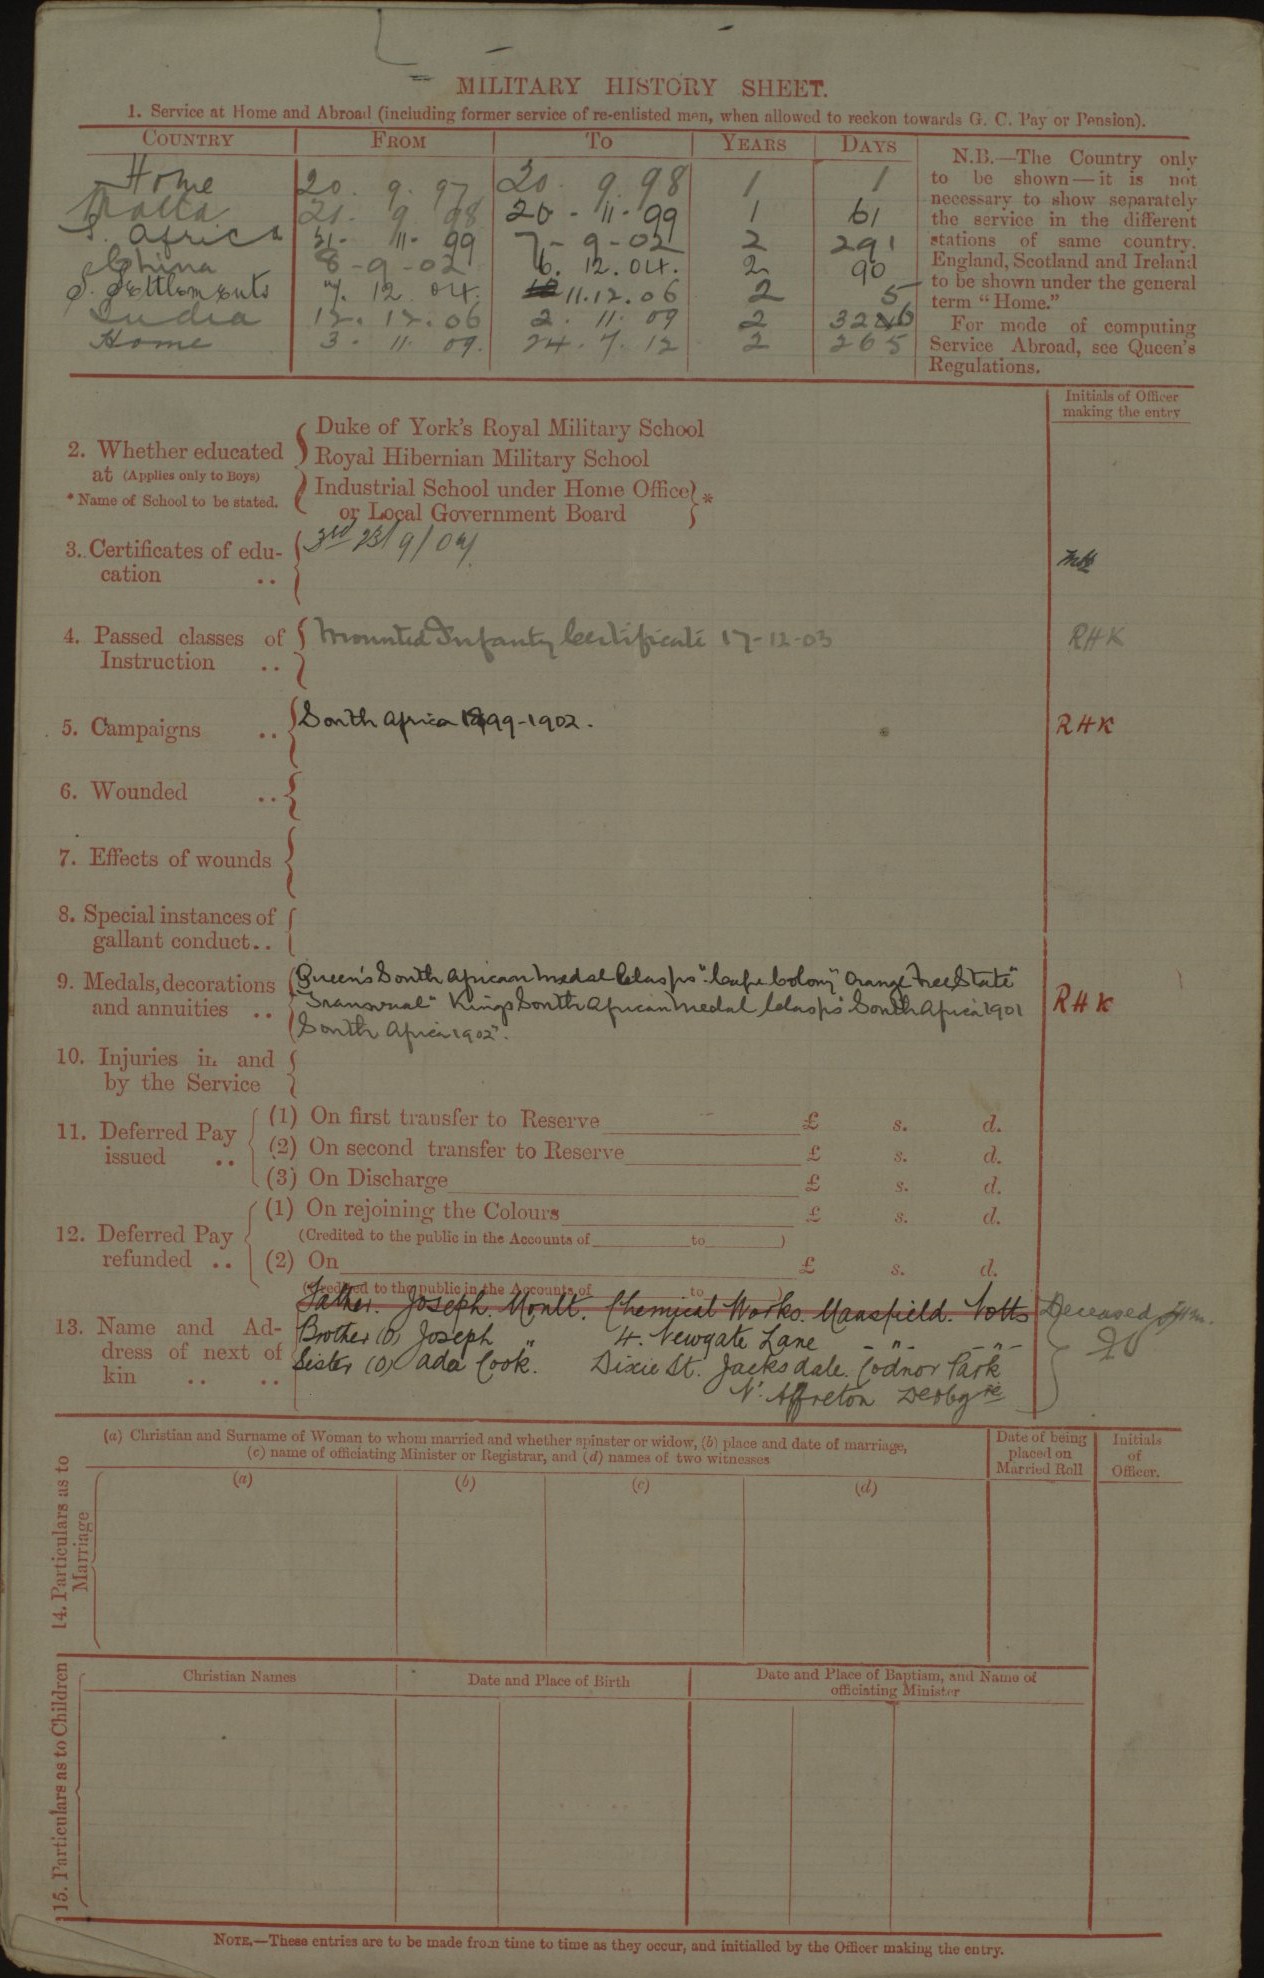 MILITARY HISTORY SHEET.
1. Service at Home and Abroad (including former service of re-enlisted men, when allowed to reckon towards G. C. Pay or Pension).
COUNTRY FROM TO YEARS DAYS
Home 20. 9. 97 20. 9. 98 1 1
Malta 21. 9. 98 20-11-99 1 61
S. Africa 21- 11- 99 7-9-02 2 291
China 8-9-02 6. 12. 04. 2 90
S. Settlements 7. 12 04. 11.12.06 2 5
India 12. 12. 06 2. 11. 09 2 326
Home 3. 11. 09. 24. 7. 12 2 265
N.B.—The Country only
to be shown—it is not
necessary to show separately
the service in the different
stations of same country.
England, Scotland and Ireland
to be shown under the general
term "Home."
For mode of computing
Service Abroad, see Queen's
Regulations.
Initials of Officer
making the entry
2. Whether educated
at (Applies only to Boys)
* Name of School to be stated.
Duke of York's Royal Military School
Royal Hibernian Military School
Industrial School under Home Office
or Local Government Board *
3. Certificates of edu-
cation ..
3rd 23/9/04
4. Passed classes of
Instruction ..
Mounted Infantry Certificate 17-12-03 RHK
5. Campaigns .. South Africa 1899-1902. RHK
6. Wounded ..
7. Effects of wounds
8. Special instances of
gallant conduct..
9. Medals, decorations
and annuities ..
Queen's South African Medal Clasps "Cape Colony" Orange Free State"
"Transvaal" Kings South African Medal Clasps "South Africa 1901
South Africa 1902". RHK
10. Injuries in and
by the Service
11. Deferred Pay
issued ..
(1) On first transfer to Reserve £ s. d.
(2) On second transfer to Reserve £ s. d.
(3) On Discharge £ s. d.
12. Deferred Pay
refunded ..
(1) On rejoining the Colours £ s. d.
(Credited to the public in the Accounts of to )
(2) On £ s. d.
(Credited to the public in the Accounts of to )
13. Name and Ad-
dress of next of
kin .. ..
Father. Joseph. Moult. Chemical Works. Mansfield. Notts Deceased
Brother (O) Joseph " 4. Newgate Lane - " - - " -
Sister (O) Ada Cook. Dixie St. Jacksdale. Codnor Park
Nr. Alfreton Derbyre
14. Particulars as to
Marriage
(a) Christian and Surname of Woman to whom married and whether spinster or widow, (b) place and date of marriage,
(c) name of officiating Minister or Registrar, and (d) names of two witnesses
Date of being
placed on
Married Roll
Initials
of
Officer.
(a) (b) (c) (d)
15. Particulars as to Children
Christian Names Date and Place of Birth
Date and Place of Baptism, and Name of
officiating Minister
NOTE.—These entries are to be made from time to time as they occur, and initialled by the Officer making the entry.